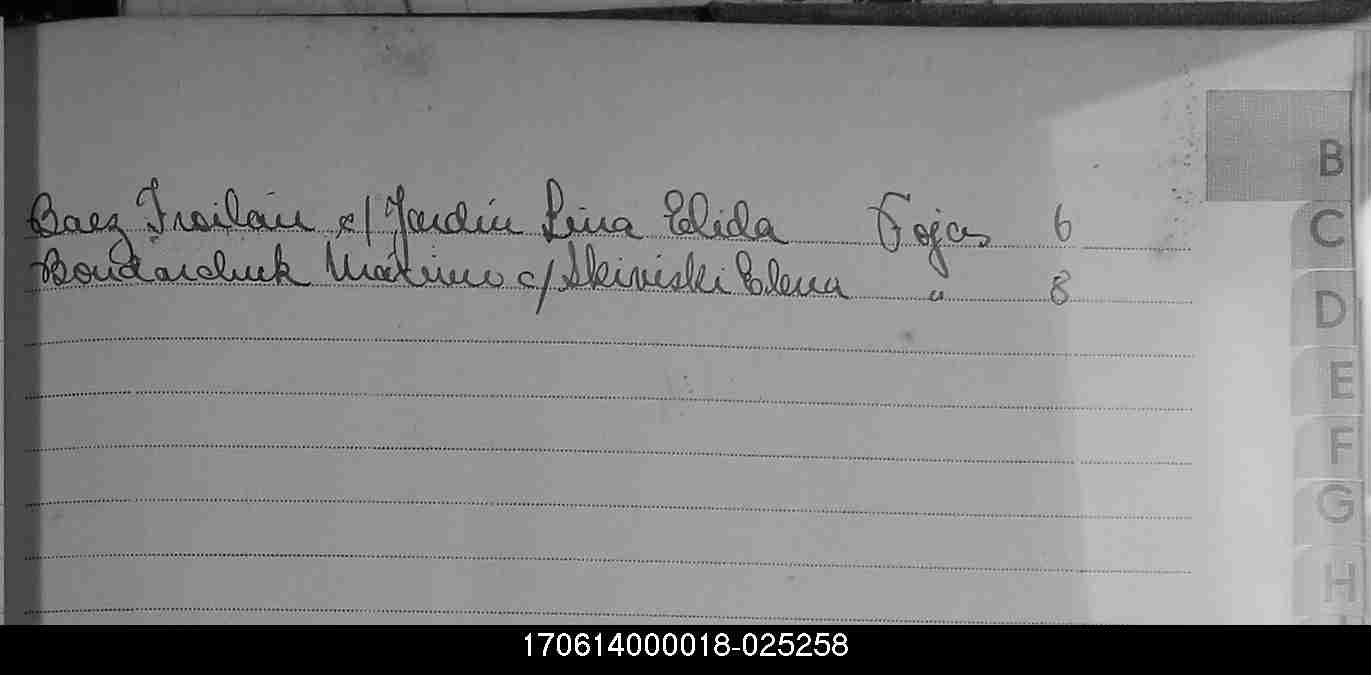 Baez Froilan c/ Jardin Lina Elida Fojas 6
Bondarchuk Maximo c/ Skiviski Elena " 8
B
C
D
E
F
G
H
170614000018-025258